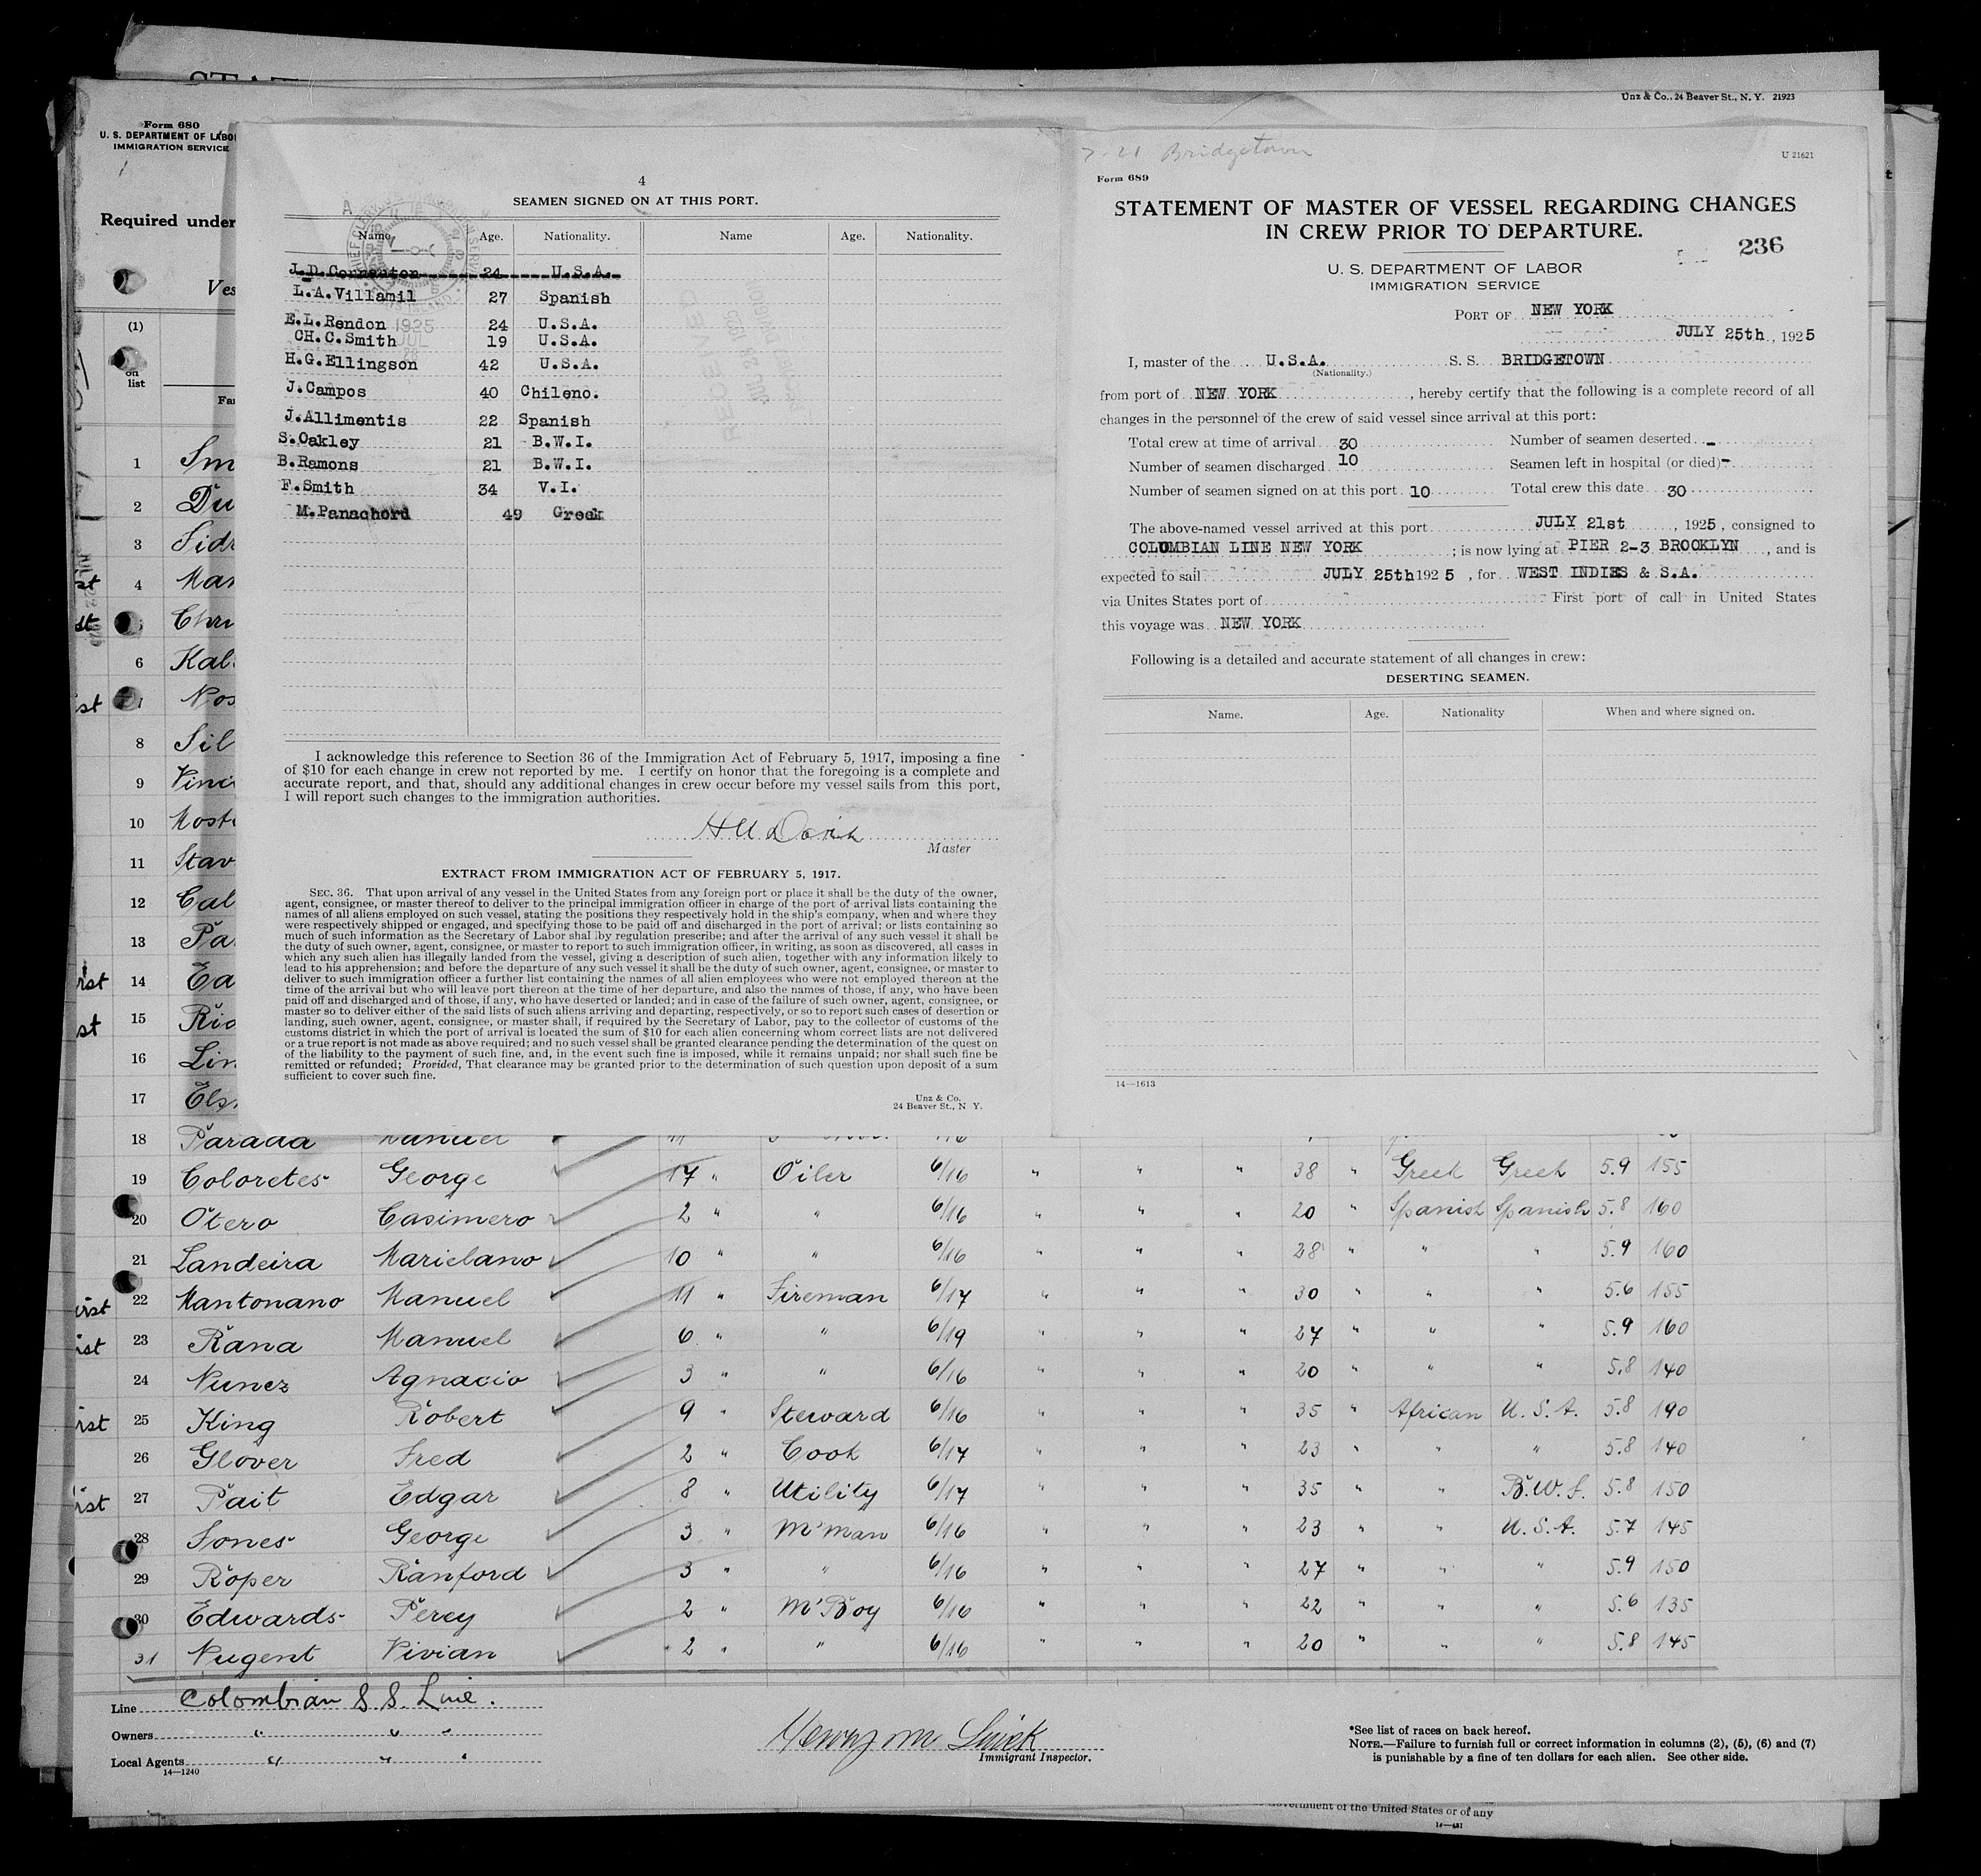 Unz & Co., 24 Beaver St., N. Y. 21923
Form 680
U. S. DEPARTMENT OF LABOR
IMMIGRATION SERVICE
1
Required under
Ves
(1)
on
list
4
SEAMEN SIGNED ON AT THIS PORT.
A
Name Age. Nationality. Name Age. Nationality.
J.D. 24 U.S.A.
L.A.Villamil 27 Spanish
E.L.Rendon 24 U.S.A.
CH.C.Smith 19 U.S.A.
H.G.Ellingson 42 U.S.A.
J.Campos 40 Chileno.
J.Allimentis 22 Spanish
S.Oakley 21 B.W.I.
B.Ramons 21 B.W.I.
F.Smith 34 V.I.
M.Panachord 49 Greek
I acknowledge this reference to Section 36 of the Immigration Act of February 5, 1917, imposing a fine
of $10 for each change in crew not reported by me. I certify on honor that the foregoing is a complete and
accurate report, and that, should any additional changes in crew occur before my vessel sails from this port,
I will report such changes to the immigration authorities.
Master
EXTRACT FROM IMMIGRATION ACT OF FEBRUARY 5, 1917.
SEC. 36. That upon arrival of any vessel in the United States from any foreign port or place it shall be the duty of the owner,
agent, consignee, or master thereof to deliver to the principal immigration officer in charge of the port of arrival lists containing the
names of all aliens employed on such vessel, stating the positions they respectively hold in the ship's company, when and where they
were respectively shipped or engaged, and specifying those to be paid off and discharged in the port of arrival; or lists containing so
much of such information as the Secretary of Labor shal lby regulation prescribe; and after the arrival of any such vessel it shall be
the duty of such owner, agent, consignee, or master to report to such immigration officer, in writing, as soon as discovered, all cases in
which any such alien has illegally landed from the vessel, giving a description of such alien, together with any information likely to
lead to his apprehension; and before the departure of any such vessel it shall be the duty of such owner, agent, consignee, or master to
deliver to such immigration officer a further list containing the names of all alien employees who were not employed thereon at the
time of the arrival but who will leave port thereon at the time of her departure, and also the names of those, if any, who have been
paid off and discharged and of those, if any, who have deserted or landed; and in case of the failure of such owner, agent, consignee, or
master so to deliver either of the said lists of such aliens arriving and departing, respectively, or so to report such cases of desertion or
landing, such owner, agent, consignee, or master shall, if required by the Secretary of Labor, pay to the collector of customs of the
customs district in which the port of arrival is located the sum of $10 for each alien concerning whom correct lists are not delivered
or a true report is not made as above required; and no such vessel shall be granted clearance pending the determination of the quest on
of the liability to the payment of such fine, and, in the event such fine is imposed, while it remains unpaid; nor shall such fine be
remitted or refunded; Provided, That clearance may be granted prior to the determination of such question upon deposit of a sum
sufficient to cover such fine.
Unz & Co.
24 Beaver St., N Y.
7-21 Bridgetown
U 21621
Form 689
STATEMENT OF MASTER OF VESSEL REGARDING CHANGES
IN CREW PRIOR TO DEPARTURE.
236
U. S. DEPARTMENT OF LABOR
IMMIGRATION SERVICE
PORT OF NEW YORK
JULY 25th, 1925
I, master of the U.S.A. S. S. BRIDGETOWN
(Nationality.)
from port of NEW YORK, hereby certify that the following is a complete record of all
changes in the personnel of the crew of said vessel since arrival at this port:
Total crew at time of arrival 30 Number of seamen deserted -
Number of seamen discharged 10 Seamen left in hospital (or died) -
Number of seamen signed on at this port 10 Total crew this date 30
The above-named vessel arrived at this port JULY 21st, 1925, consigned to
COLOMBIAN LINE NEW YORK; is now lying at PIER 2-3 BROOKLYN, and is
expected to sail JULY 25th 1925, for WEST INDIES & S.A.
via Unites States port of First port of call in United States
this voyage was NEW YORK
Following is a detailed and accurate statement of all changes in crew:
DESERTING SEAMEN.
Name. Age. Nationality When and where signed on.
14—1613
1 Sm
2 Du
3 Sidr
4 Man
Chri
6 Kal
Nos
8 Sil
9 Vinc
10 Most
11 Stav
12 Cal
13 Pa
14 Ea
15 Rio
16 Lin
17 Els
18 Parada Manuel
19 Coloretes George 17 " Oiler 6/16 " " " 38 " Greek Greek 5.9 155
20 Otero Casimero 2 " " 6/16 " " " 20 " Spanish Spanish 5.8 160
21 Landeira Marielano 10 " " 6/16 " " " 28 " " " 5.9 160
22 Mantonano Manuel 11 " Fireman 6/17 " " " 30 " " " 5.6 155
23 Rana Manuel 6 " " 6/19 " " " 27 " " " 5.9 160
24 Nunez Agnacio 3 " " 6/16 " " " 20 " " " 5.8 140
25 King Robert 9 " Steward 6/16 " " " 35 " African U.S.A. 5.8 190
26 Glover Fred 2 " Cook 6/17 " " " 23 " " " 5.8 140
27 Pait Edgar 8 " Utility 6/17 " " " 35 " " B.W.I. 5.8 150
28 Jones George 3 " M'man 6/16 " " " 23 " " U.S.A. 5.7 145
29 Roper Ranford 3 " " 6/16 " " " 27 " " " 5.9 150
30 Edwards Percy 2 " M'Boy 6/16 " " " 22 " " " 5.6 135
31 Nugent Vivian 2 " " 6/16 " " " 20 " " " 5.8 145
Line Colombian S S. Line.
Owners " " "
Local Agents " " "
14—1240
Immigrant Inspector.
*See list of races on back hereof.
NOTE.—Failure to furnish full or correct information in columns (2), (5), (6) and (7)
is punishable by a fine of ten dollars for each alien. See other side.
Government of the United States or of any